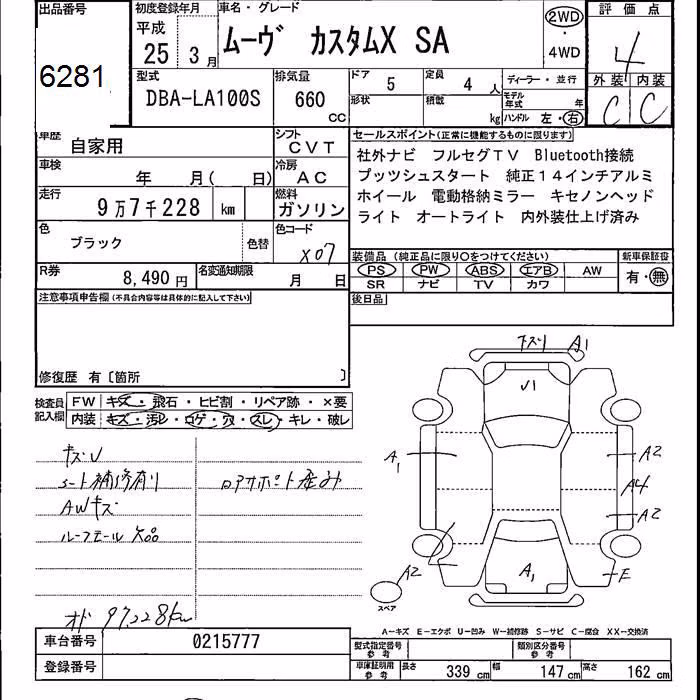 出品番号
6281
初度登録年月
平成
25 3月
車名・グレード
ムーヴ カスタムX SA
2WD
・
4WD
評価点
4
外装 内装
C C
型式
DBA-LA100S
排気量
660
CC
ドア 5
定員 4 人
形状
積載 kg
ディーラー・並行
モデル年式 年
ハンドル 左・右
車歴 自家用
シフト CVT
車検 年 月( 日)
冷房 AC
走行 9万7千228 km
燃料 ガソリン
色 ブラック
色替
色コード X07
R券 8,490円
名変通知期限 月 日
セールスポイント(正常に機能するものに限ります)
社外ナビ フルセグTV Bluetooth接続
プッツシュスタート 純正14インチアルミ
ホイール 電動格納ミラー キセノンヘッド
ライト オートライト 内外装仕上げ済み
装備品(純正品に限り○をつけてください)
PS PW ABS エアB AW
SR ナビ TV カワ
新車保証書
有・無
後日品
注意事項申告欄(不具合内容等は具体的に記入して下さい)
修復歴 有〔箇所 〕
検査員記入欄
FW キズ・飛石・ヒビ割・リペア跡・×要
内装 キズ・汚レ・コゲ・穴・スレ・キレ・破レ
キズU
シート補修有り
AWキズ
ルーフモール欠品
ロアサポート歪み
オド 97,228km
下ズリ A1
U1
A1
A2
A4
A2
A1
E
A2
スペア
A―キズ E―エクボ U―凹み W―補修跡 S―サビ C―腐食 XX―交換済
車台番号 0215777
登録番号
型式指定番号 参考
類別区分番号 参考
車庫証明用 参考
長さ 339 cm 幅 147 cm 高さ 162 cm